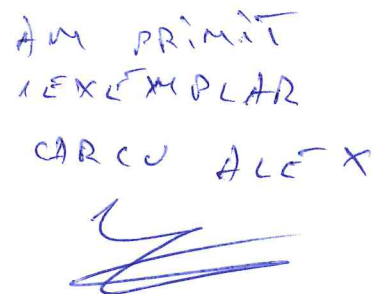 AM PRIMIT
1 EXEMPLAR
CARCU ALEX